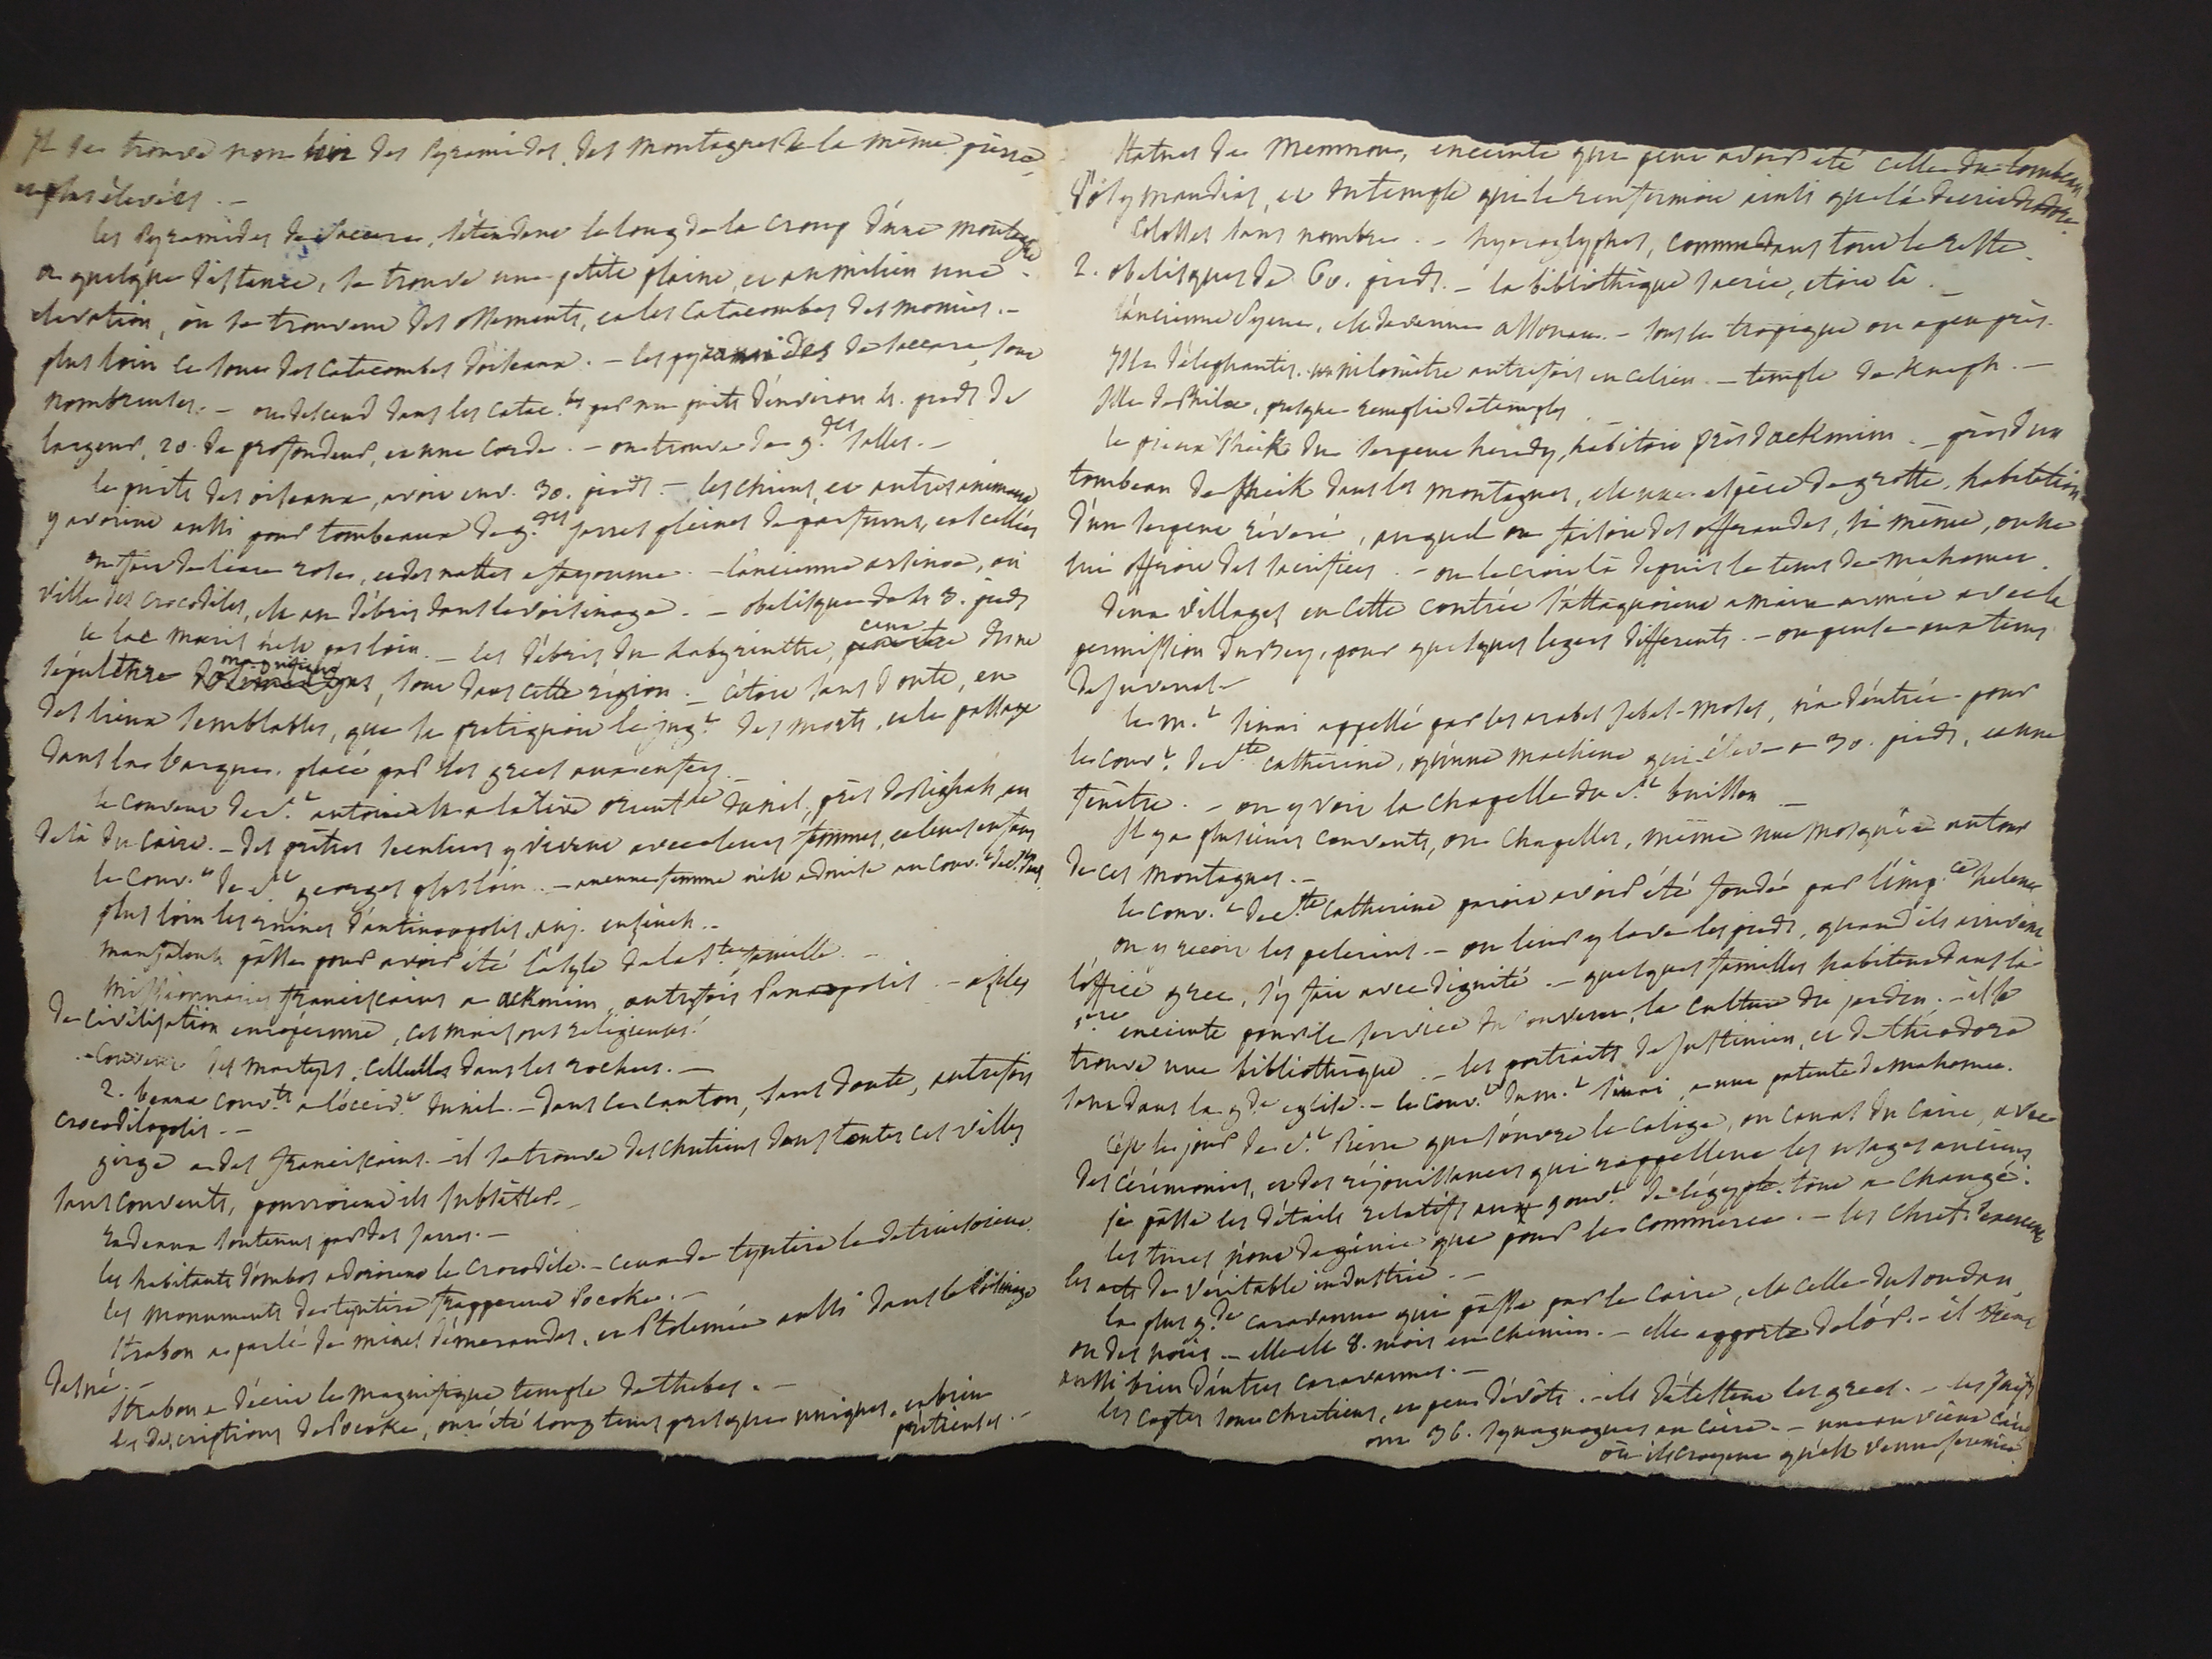 Il se trouve non loin des Pyramides, des montagnes de la même pierre,
et plus élevées. —
les Pyramides de Saccara, s'étendent le long de la croup d'une montagne
a quelque distance, se trouve une petite plaine, et au milieu une
elevation, où se trouvent des ossements, et les Catacombes des momies. —
plus loin ce sont des catacombes d'oiseaux. — les pyramides de Saccara sont
nombreuses. — on descend dans les catac.bes par un puits d'environ 4. pieds de
largeur, 20. de profondeur, et une corde. — on trouve de g.des salles. —
le puits des oiseaux, avoit env. 30. pieds. — les chiens, et autres animaux
y avoient aussi pour tombeaux de g.des jarres pleines de parfums, et scellées
on fait de l'eau rose, et des nattes a fayoume. — l'ancienne arsinoe, ou
ville des crocodiles, est en débris dans le voisinage. — obelisque de 43. pieds
le lac mœris n'est pas loin. — les débris du Labyrinthe, ceux d'une
sépulture, sont dans cette région. — c'étoit sans doute, en
des lieux semblables, que se pratiquoit le jug.t des morts, et le passage
dans la barque, placé par les grecs aux enfers. —
le convent de S.t antoine est a la rive orient.le du nil, près de au
delà du Caire. — des prêtres seculiers y vivent avec leurs femmes, et leurs enfans
le couv.t de S.t georges plus loin. — aucune femme n'est admise au couv.t de S.t
plus loin les ruines d'antinoopolis, auj. ensineh. —
manfalouk passe pour avoir été l'asyle de la S.te famille. —
missionnaires franciscains a ackmim, autrefois Panopolis. — asyles
de civilisation européenne, ces maisons religieuses!
— Convent des martyrs, cellules dans les rochers. —
2. beaux couv.ts a l'occid.t du nil. — dans ce canton, sans doute, autrefois
crocodilopolis. —
girgé a des franciscains. — il se trouve des chretiens dans toutes ces villes
sans convents, pourroient ils subsister. —
Radeaux soutenus par des jarres. —
les habitants d'ombos adoroient le crocodile. — ceux de tyntira le detruisoient
les monuments de tyntira frapperent Pococke. —
Strabon a parlé de mines d'émeraudes, et Ptolemée aussi dans le voisinage
d'esné. —
Strabon a décrit le magnifique temple de thebes. —
les descriptions de Pococke, ont été long tems presque uniques, et bien
précieuses. —
Statues de Memnon, enceinte que peut avoir été celle du tombeau
d'osymandias, et du temple qui le renfermoit ainsi que l'a decrit diodore.
Colosses sans nombre. — hyeroglyphes, comme dans tout le reste.
2. obelisques de 60. pieds. — la bibliothèque sacrée, étoit là. —
l'ancienne Syene, est devenue assouan. — sous le tropique ou a peu près.
Isle d'elephantis. un nilomètre autrefois en ce lieu. — temple de Knuph. —
Isle de Philæ, presque remplie de temples
le pieux Sheik du serpent heredy, habitoit près d'ackmim. — près d'un
tombeau de Sheik dans les montagnes, est une espèce de grotte, habitation
d'un serpent révéré, auquel on faisoit des offrandes, si même, on ne
lui offroit des sacrifices. — on le croit là depuis le tems de mahomet.
deux villages en cette contrée s'attaquoient a main armée avec la
permission du Bey, pour quelques legers differents. — on pense aux tems
de juvenal. —
le m.t Sinai appellé par les arabes jebel-moses, n'a d'entrée pour
le couv.t de S.te catherine, qu'une machine qui élève a 30. pieds, et une
fenêtre. — on y voit la chapelle du S.t buisson —
Il y a plusieurs convents, ou chapelles, même une mosquée autour
de ces montagnes. —
le couv.t de S.te catherine paroit avoir été fondé par l'imp.ce helene
on y reçoit les pelerins. — on leur y lave les pieds, quand ils arrivent
l'office grec, s'y fait avec dignité. — quelques familles habitent dans la
enceinte pour le service du couvent, la culture du jardin. — il se
trouve une bibliothèque. — les portraits de Justinien, et de théodora
sont dans la g.de eglise. — le couv.t du m.t Sinai a une patente de mahomet.
C'est le jour de S.t Pierre que s'ouvre le calige, ou canal du Caire, avec
des cérémonies, et des réjouissances qui rappellent les usages anciens
je passe les détails relatifs au gouv.t de l'égypte. tout a changé.
les turcs n'ont de génie que pour le commerce. — les chret.s exercent
les arts de véritable industrie. —
la plus g.de caravanne qui passe par le Caire, est celle du soudan
ou des noirs. — elle est 8. mois en chemin. — elle apporte de l'or. — il vient
aussi bien d'autres caravannes. —
les coptes sont chretiens, et peu dévots. — ils détestent les grecs. — les Juifs
ont 36. synagogues au caire. — une au vieux caire
où ils croyent qu'est venu jeremie.